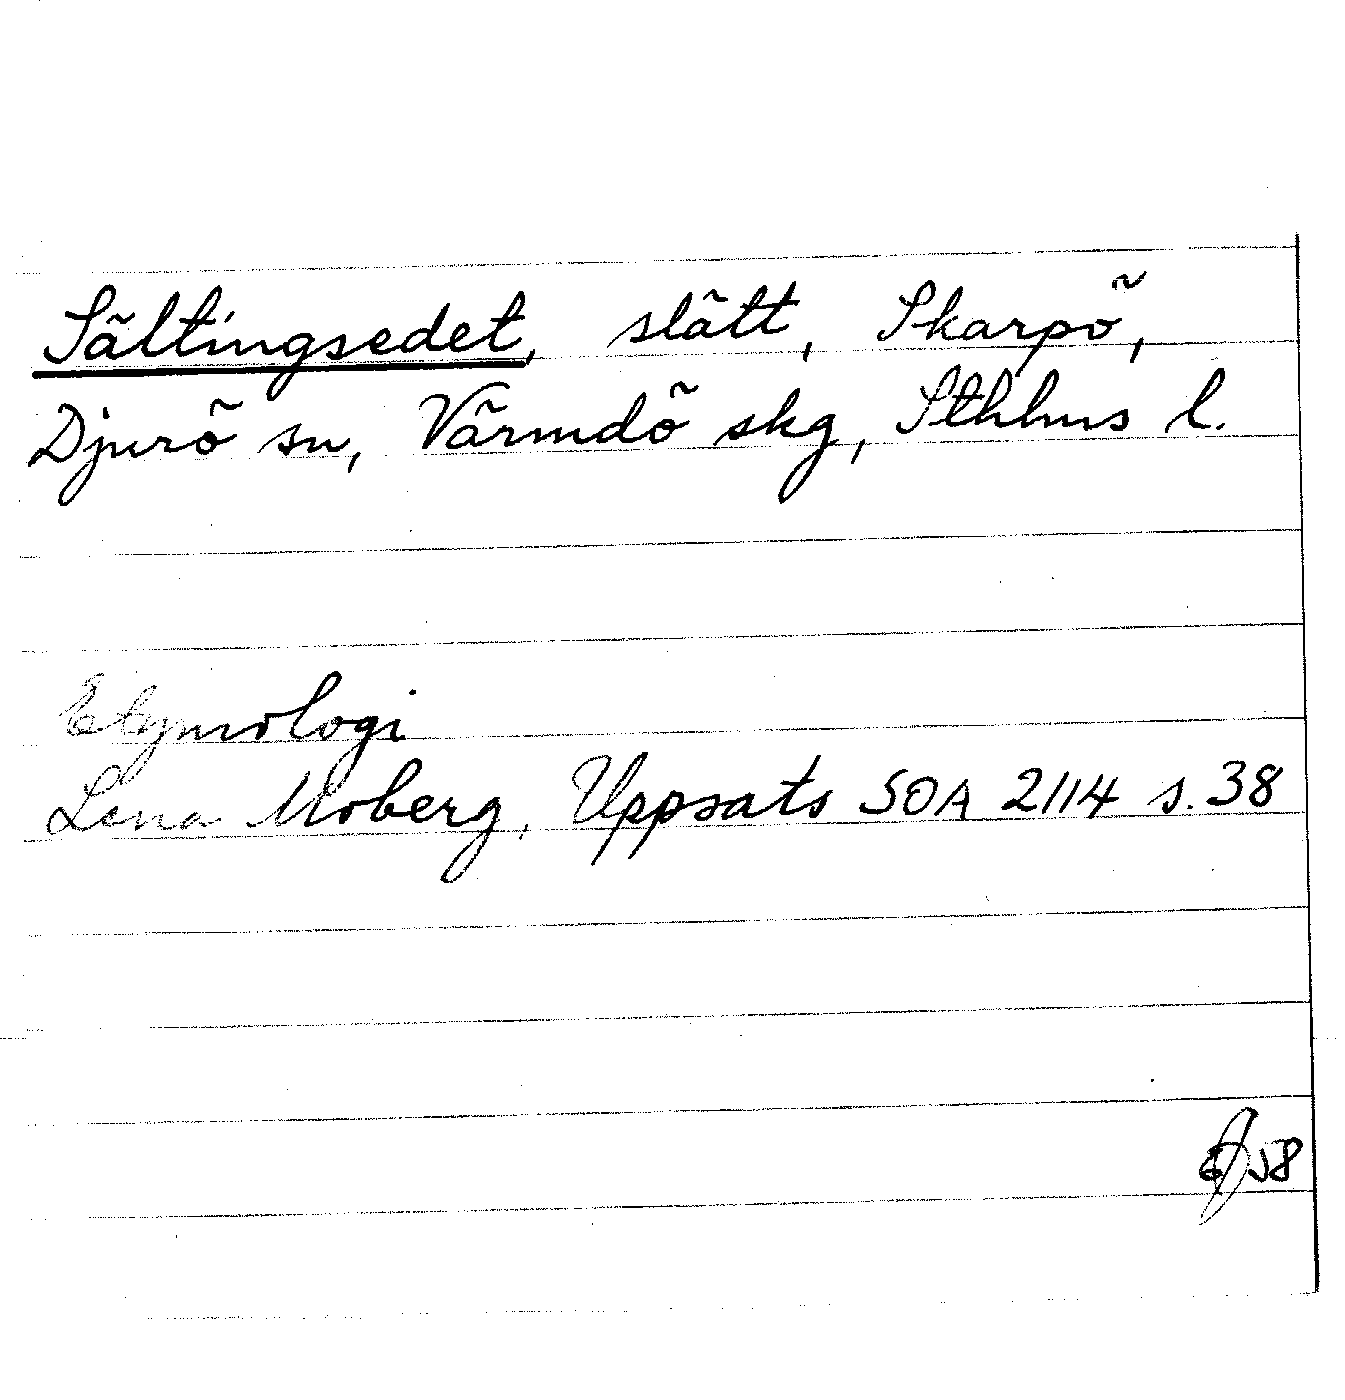 Sältingsedet, slätt, Skarpö,
Djurö sn, Värmdö skg, Sthlms l.
Etymologi
Lena Moberg, Uppsats SOA 2114 s. 38